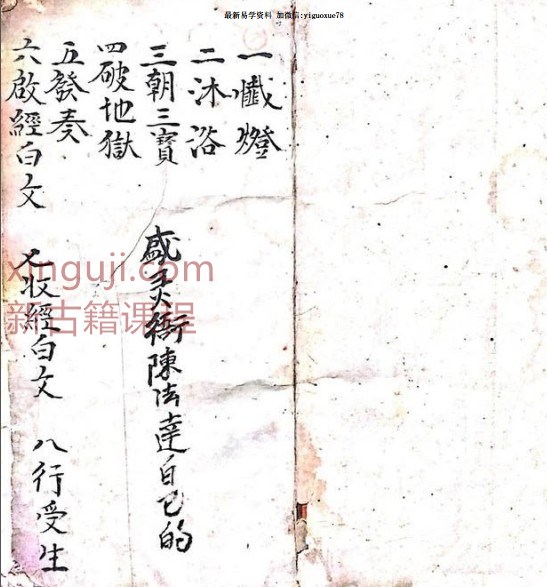 最新易学资料 加微信:yiguoxue78
一懺燈
二沐浴
三朝三寶
四破地獄
五發奏
六啟經白文
七收經白文
八行受生
灵衙陳法達自己的
xinguji.com
新古籍课程